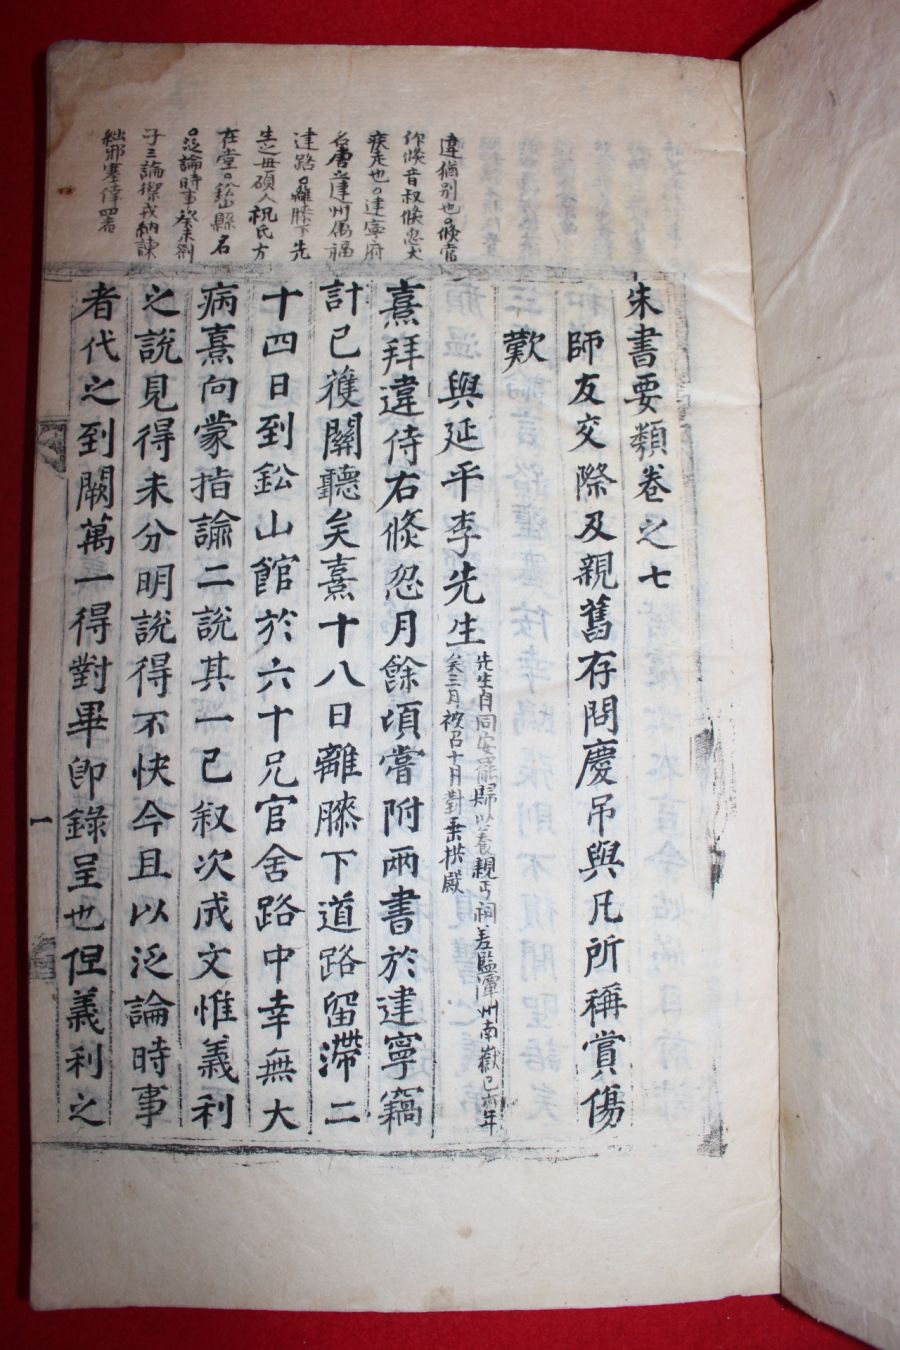 違猶別也。倏當
作倐音叔倐忽犬
疾走也。建寧府
名唐之建州属福
建路。離膝下先
生之母碩人祝氏方
在堂。鈆山縣名
。泛論時事癸未劄
子三論禦戎納諫
絀邪塞倖四者
朱書要類卷之七
師友交際及親舊存問慶吊與凡所稱賞傷
歎
與延平李先生
先生自同安罷歸以養親丐祠差監潭州南嶽已六年
矣三月被召十月對垂拱殿
熹拜違侍右倐忽月餘頃嘗附兩書於建寧竊
計已獲關聽矣熹十八日離膝下道路留滯二
十四日到鈆山館於六十兄官舍路中幸無大
病熹向蒙指諭二說其一已叙次成文惟義利
之說見得未分明說得不快今且以泛論時事
者代之到闕萬一得對畢即錄呈也但義利之
一